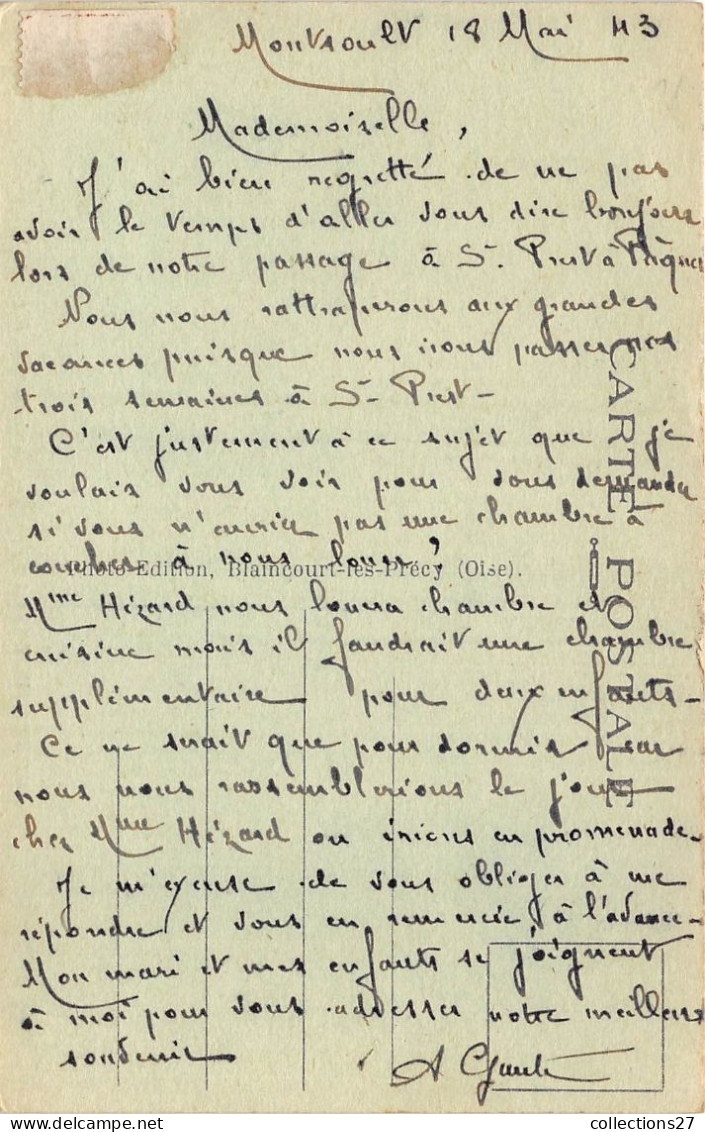 Montsoult 18 Mai 43
Mademoiselle,
J'ai bien regretté de ne pas
avoir le temps d'aller vous dire bonjour
lors de notre passage à St. Prest à Pâques
Nous nous rattraperons aux grandes
vacances puisque nous irons passer nos
trois semaines à St Prest -
C'est justement à ce sujet que je
voulais vous voir pour vous demander
si vous n'auriez pas une chambre à
coucher à nous louer ?
Photo-Edition, Blaincourt-lès-Précy (Oise).
Mme Hézard nous louera chambre et
cuisine mais il faudrait une chambre
supplémentaire pour deux enfants -
Ce ne serait que pour dormir car
nous nous rassemblerions le jour
chez Mme Hézard ou irions en promenade -
Je m'excuse de vous obliger à me
répondre et vous en remercie à l'avance -
Mon mari et mes enfants se joignent
à moi pour vous adresser notre meilleur
souvenir
A
CARTE POSTALE
collections27